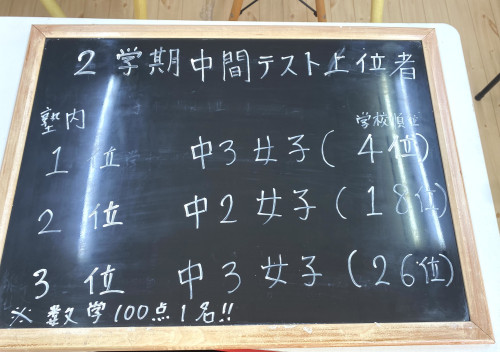 2学期中間テスト上位者
塾内 学校順位
1位 中3女子(4位)
2位 中2女子(18位)
3位 中3女子(26位)
※数学100点1名!!